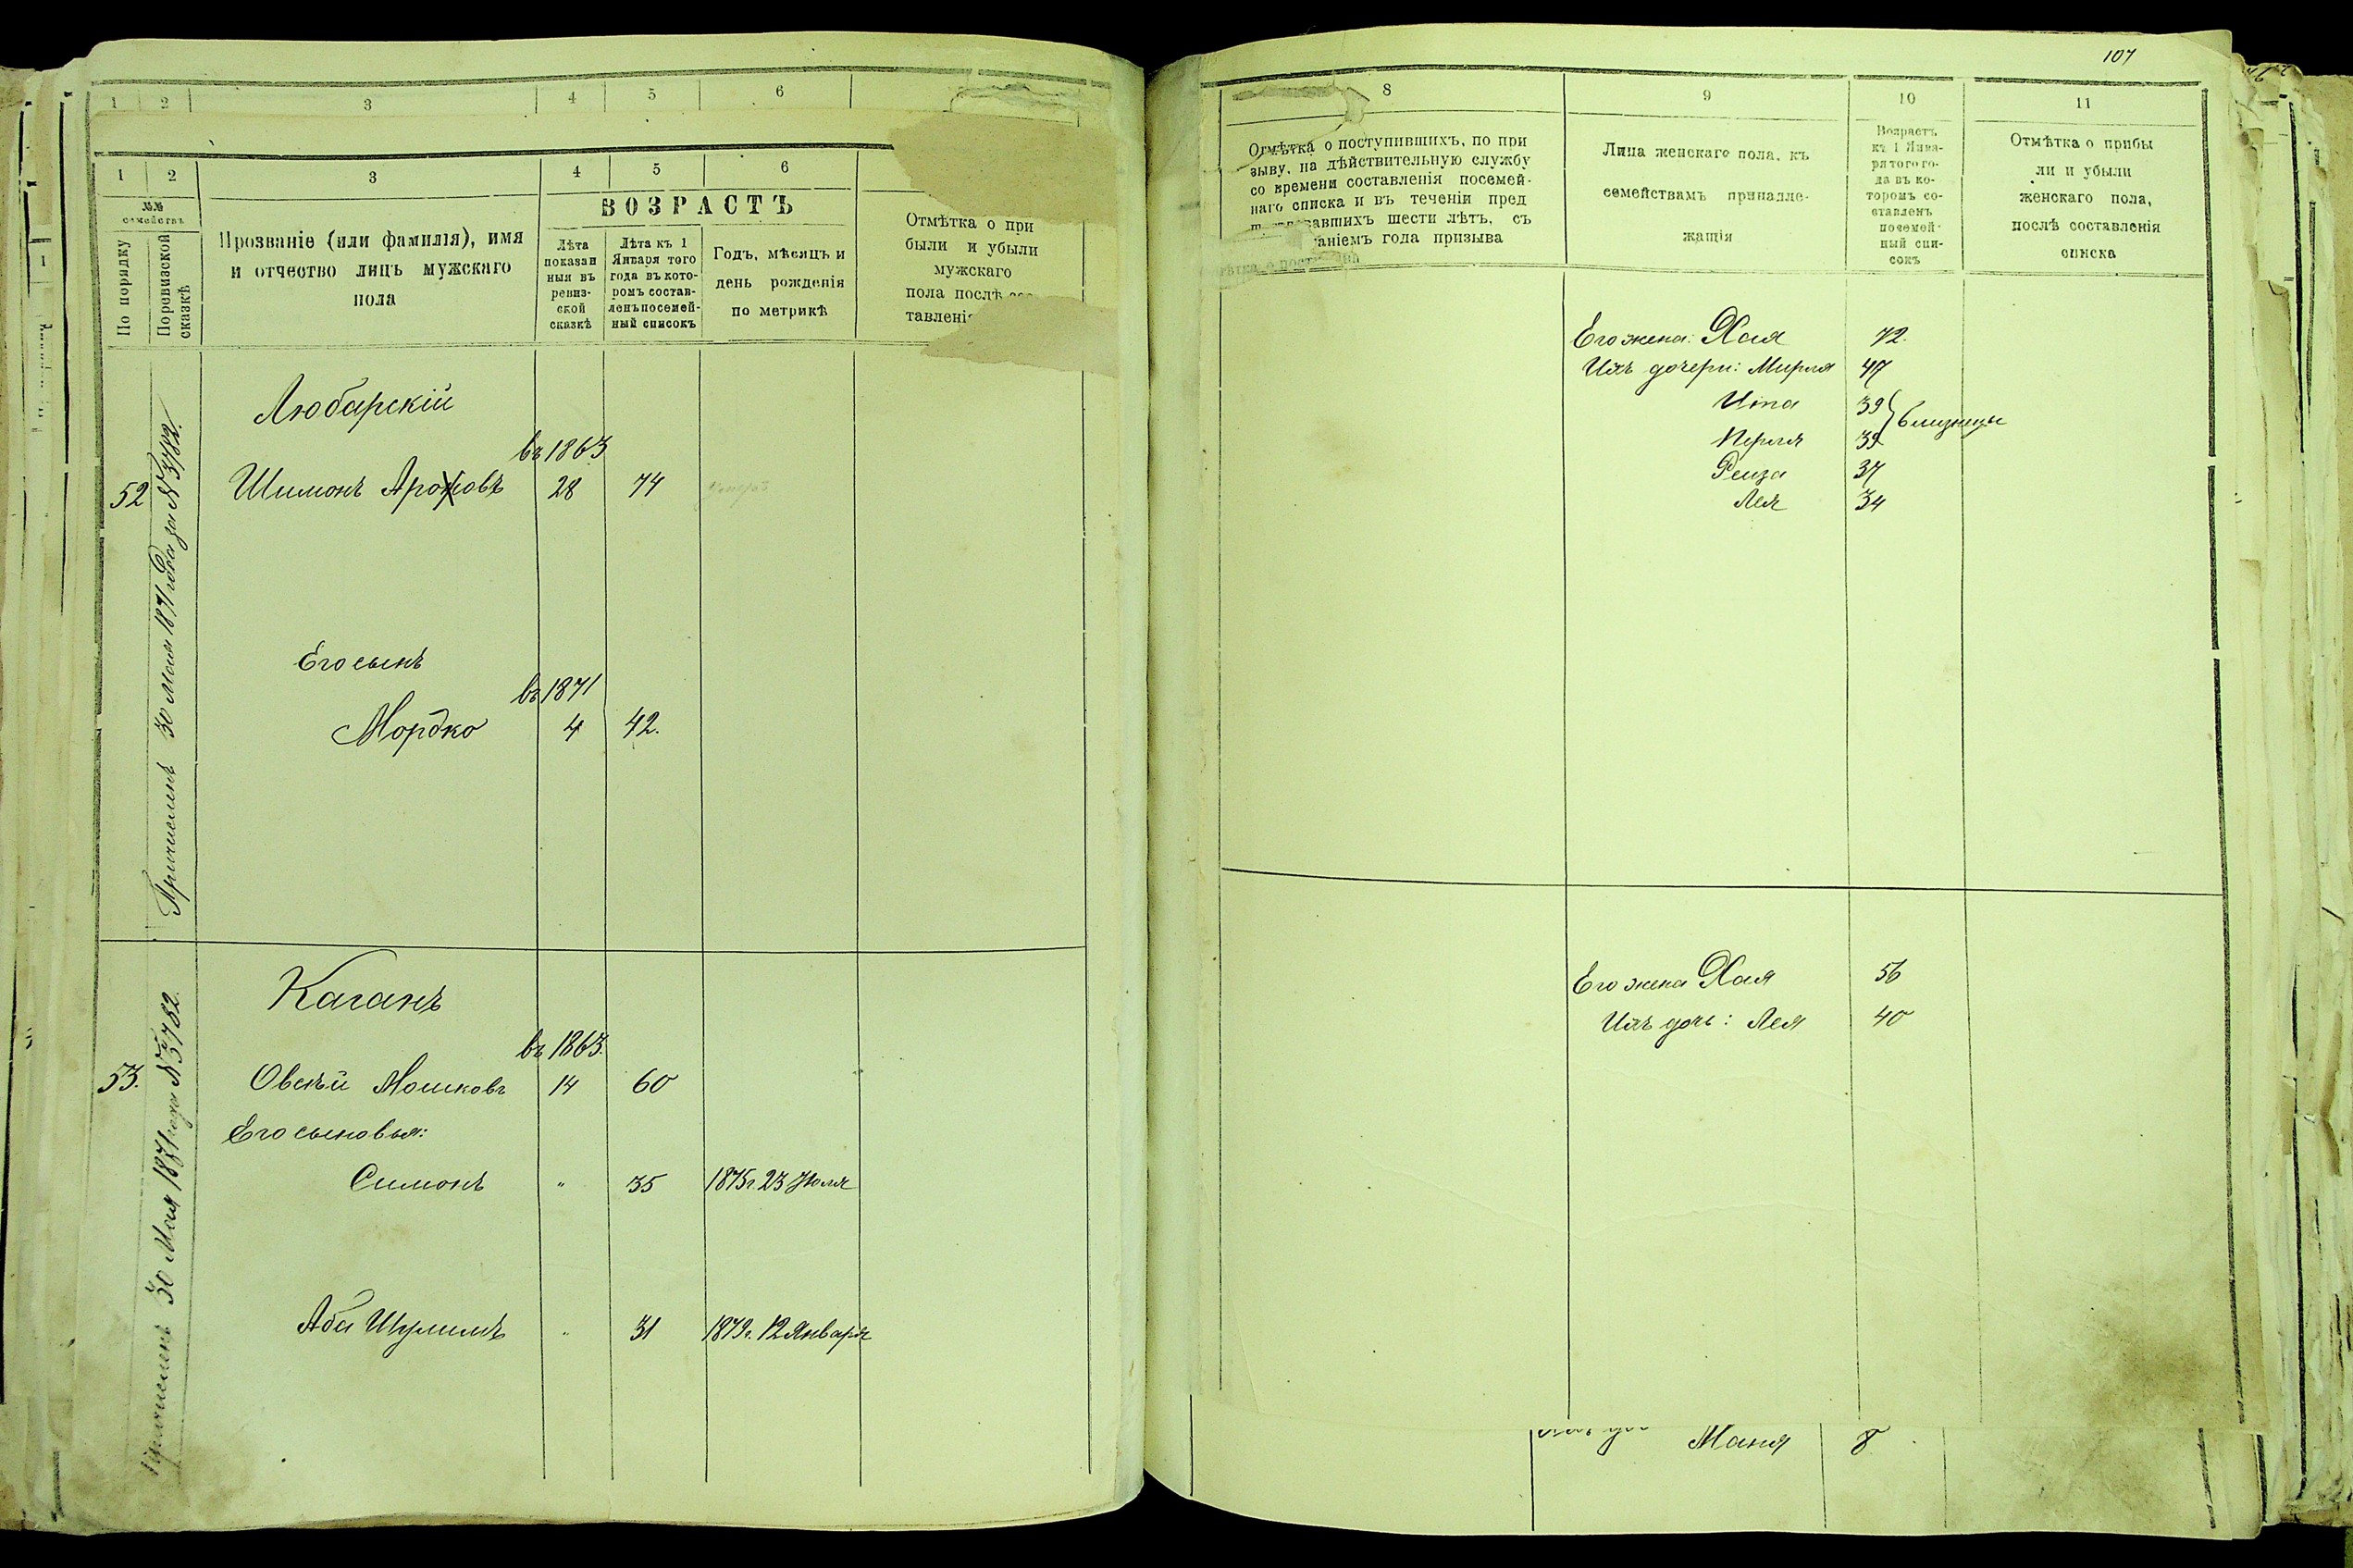 1 2 3 4 5 6
1 2 3 4 5 6
№№ семействъ
По порядку
По ревизской сказкѣ
Прозваніе (или фамилія), имя
и отчество лицъ мужскаго
пола
ВОЗРАСТЪ
Лѣта
показан
ныя въ
ревиз-
ской
сказкѣ
Лѣта къ 1
Января того
года въ кото-
ромъ состав-
ленъ посемей-
ный списокъ
Годъ, мѣсяцъ и
день рожденія
по метрикѣ
Отмѣтка о при
были и убыли
мужскаго
пола послѣ
тавленія
Любарскій
въ 1863
52 Шимонъ Ароновъ 28 74
Причисленъ 30 Мая 1871 года за № 3782.
Его сынъ
въ 1871
Мордко 4 42.
Каганъ
въ 1863.
53. Овсѣй Мошковъ 14 60
Причисленъ 30 Мая 1871 года № 3782.
Его сыновья:
Симонъ " 35 1875г. 23 Іюля
Аба Шулимъ " 31 1879г. 12 Января
107
8 9 10 11
Отмѣтка о поступившихъ, по при
зыву, на дѣйствительную службу
со времени составленія посемей-
наго списка и въ теченіи пред
вавшихъ шести лѣтъ, съ
аніемъ года призыва
Лица женскаго пола, къ
семействамъ принадле-
жащія
Возрастъ
къ 1 Янва-
ря того го-
да въ ко-
торомъ со-
ставленъ
посемей-
ный спи-
сокъ
Отмѣтка о прибы
ли и убыли
женскаго пола,
послѣ составленія
списка
Его жена: Хая 72.
Ихъ дочери: Мирля 47
Ита 39
близнецы
Перля 39
Рейза 37
Лея 34
Его жена Хая 56
Ихъ дочь: Лея 40
Маня 8